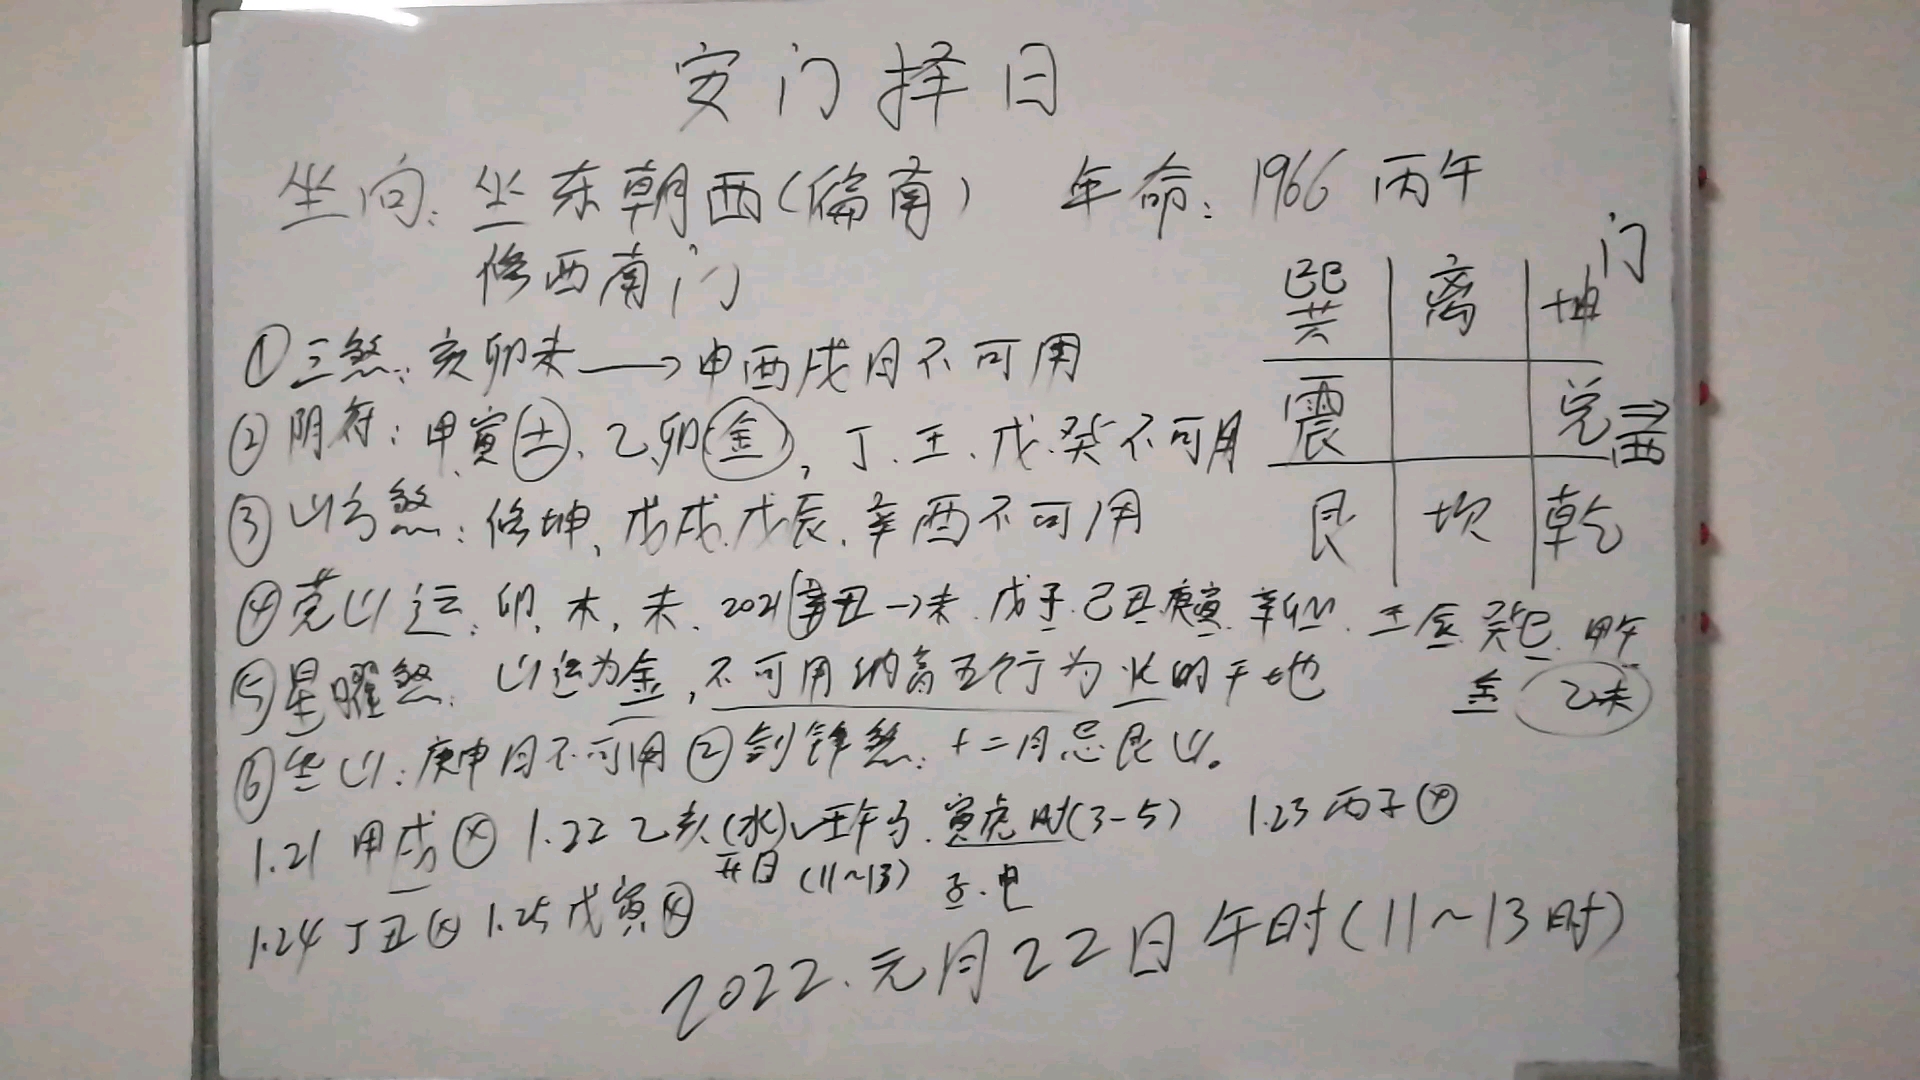 安门择日
坐向:坐东朝西(偏南) 年命:1966 丙午
修西南门
门
巽 离 坤
震 兑 ⇒西
艮 坎 乾
①三煞:亥卯未→申酉戌月不可用
②阴府:甲寅(土)、乙卯(金),丁.壬.戊.癸不可用
③山方煞:修坤、戊戌.戊辰.辛酉不可用
④克山运:卯,木,未.2021辛丑→未.戊子.己丑.庚寅.辛卯.壬辰.癸巳.甲午
金 乙未
⑤星曜煞.山运为金,不可用纳音五行为火的干地
⑥坐山:庚申月不可用 ②剑锋煞:十二月忌艮山。
1.21 甲戌 ⊗ 1.22 乙亥(水)√壬午时.寅虎时(3-5) 1.23 丙子⊗
开日(11~13) 子.电
1.24 丁丑⊗ 1.25戊寅⊗
2022.元月22日午时(11~13时)